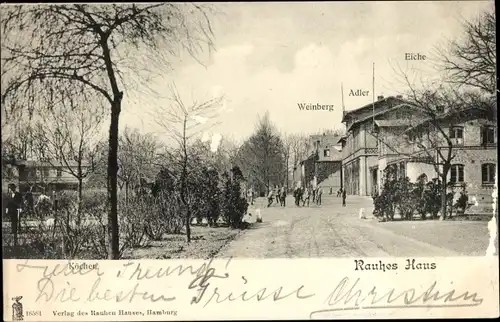 Eiche
Adler
Weinberg
Köcher
Rauhes Haus
Die besten Grüsse Christian
16561 Verlag des Rauhen Hauses, Hamburg